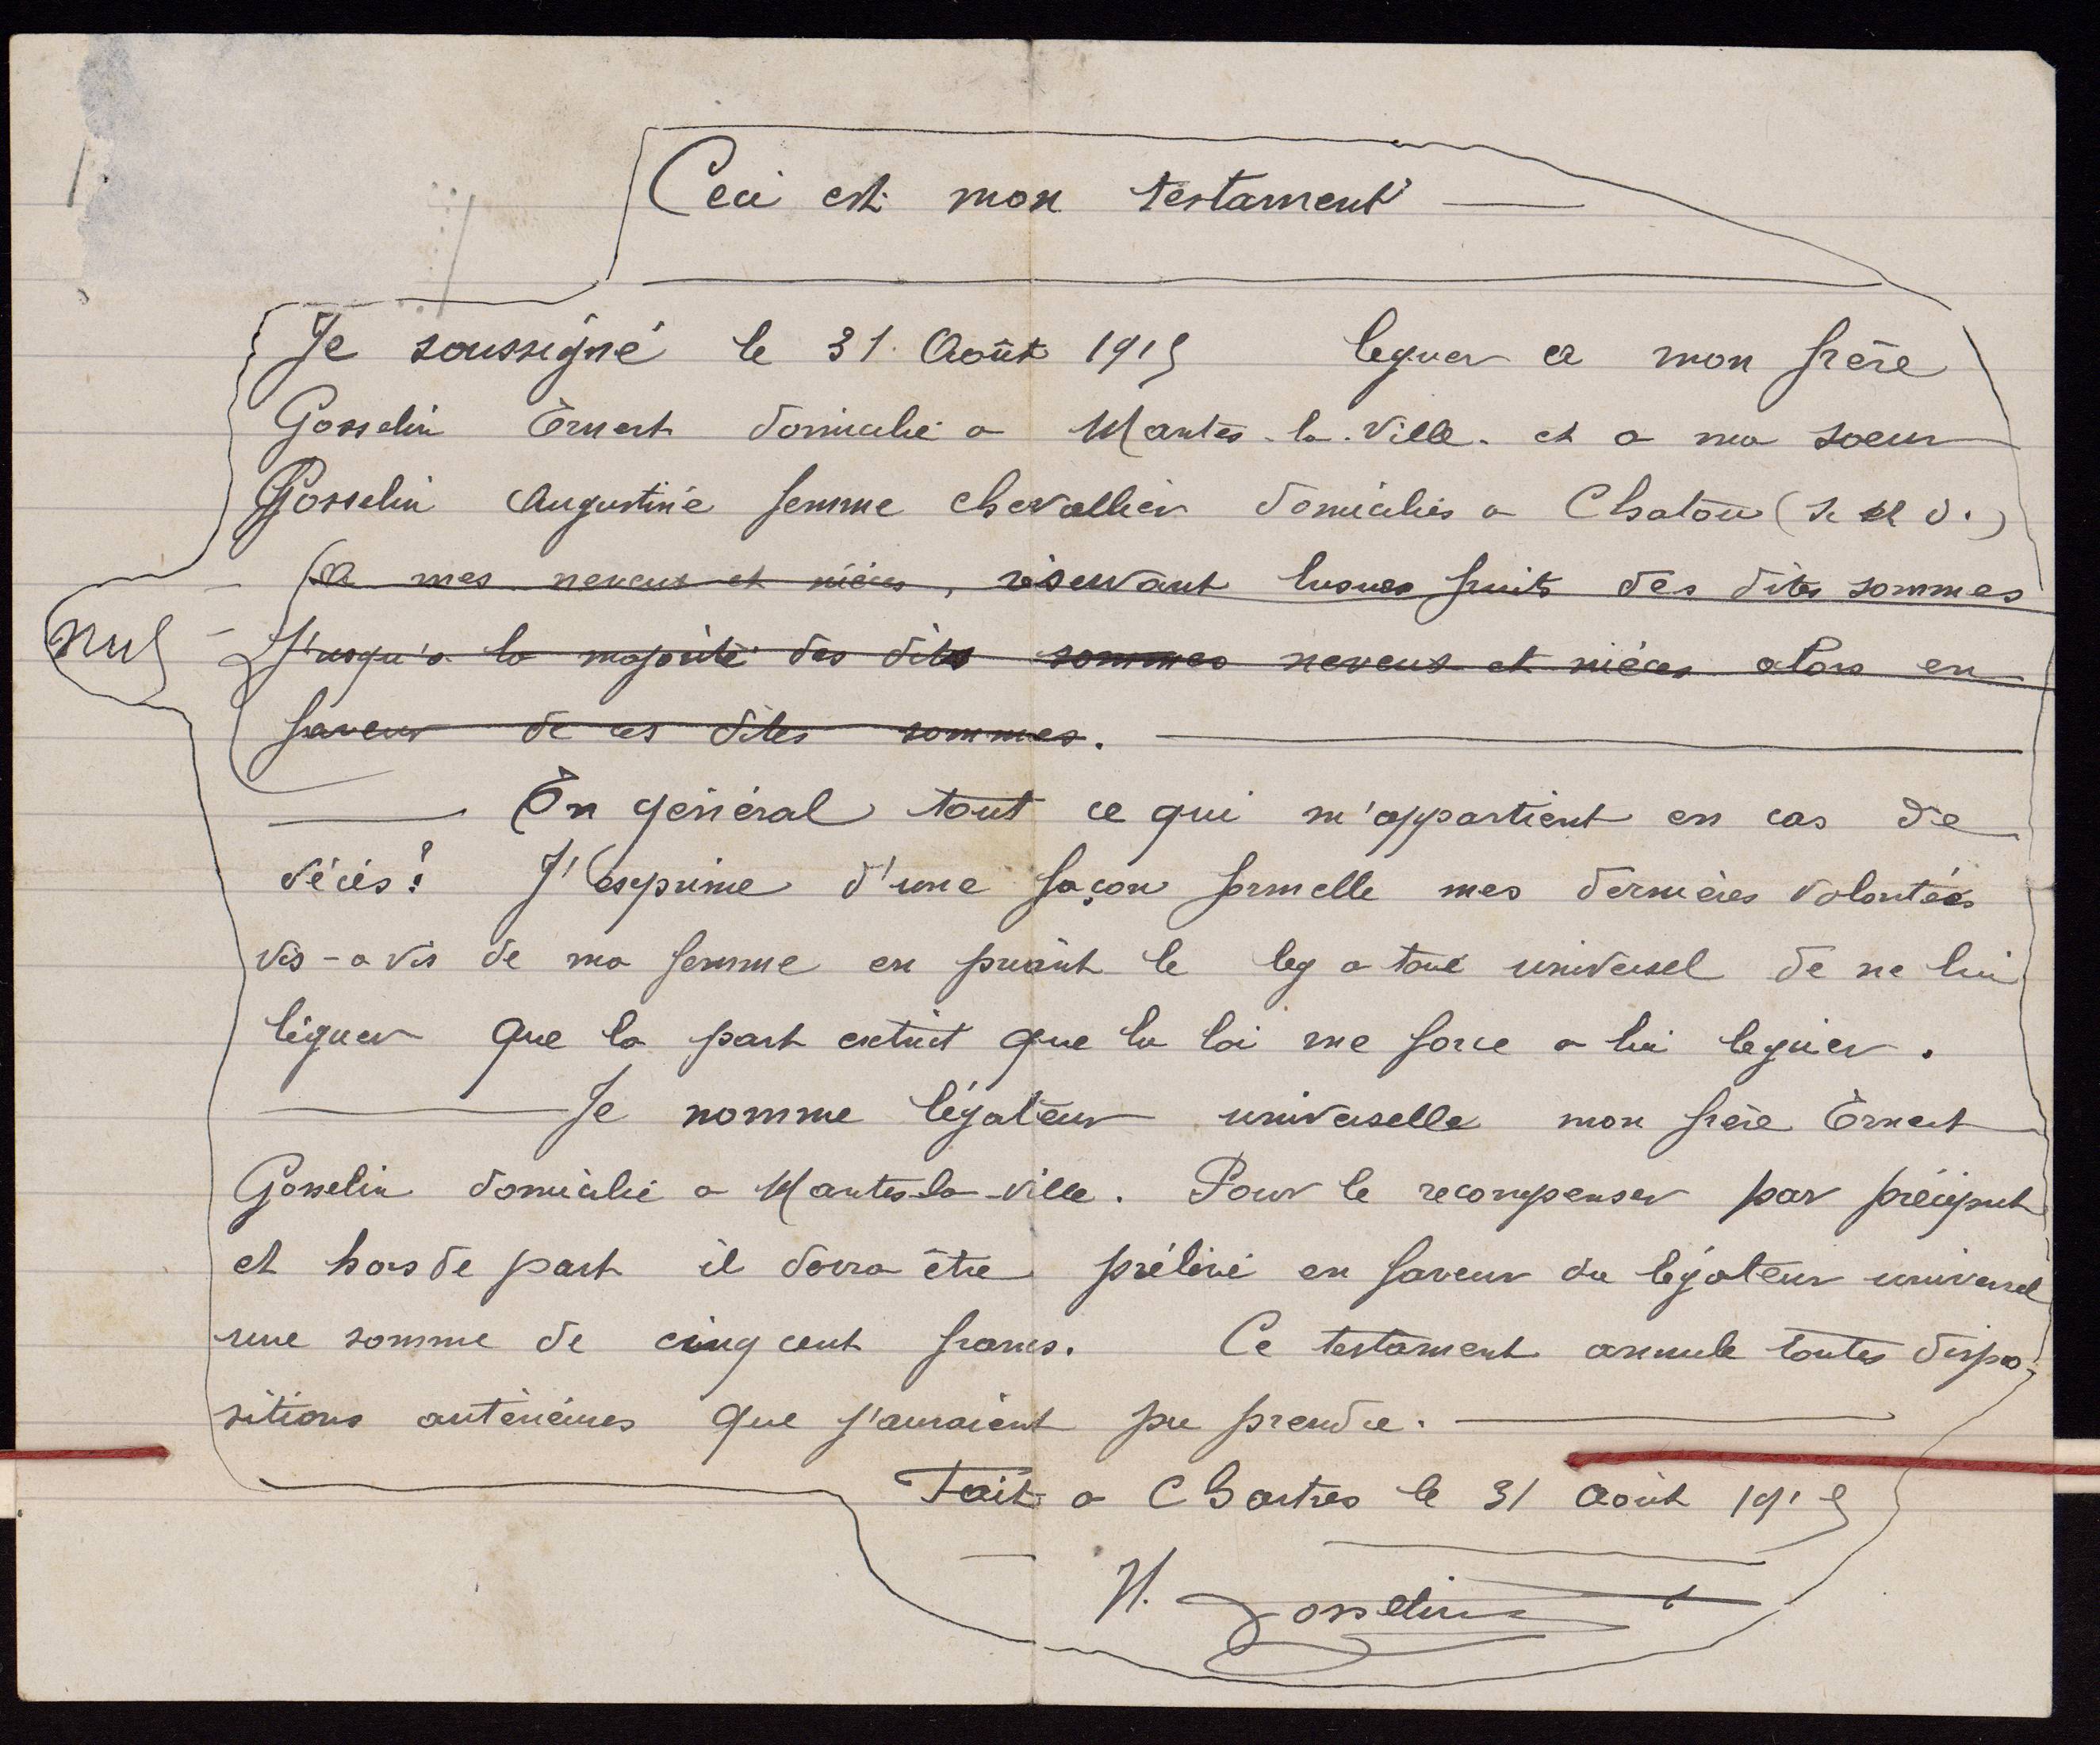 Ceci est mon testament
Je soussigné le 31 Août 1915 leguer a mon frère
Gosselin Ernest domicilié a Mantes-la-Ville. et a ma soeur
Gosselin Augustine femme chevallier domiciliés a Chatou (S et O.)
A mes neveux et nièces, réservant lusues fruits des dites sommes
nul
J'usqu'a la majorité des dits sommes neveux et nièces alors en
faveur de ces dites sommes.
En général tout ce qui m'appartient en cas de
décès! J'exprime d'une façon formelle mes dernières volontées
vis-a vis de ma femme en priant le leg a taué universel de ne lui
léguer que la part extrict que la loi me force a lui leguer.
Je nomme légateur universelle mon frère Ernest
Gosselin domicilié a Mantes-la-ville. Pour le recompenser par préciput
et hors de part il devra être prélévé en faveur du légateur universel
une somme de cinq cent francs. Ce testament annule toutes dispo-
sitions antérieures que j'auraient pu prendre.
Fait a Chartres le 31 Août 1915
H. Gosselin